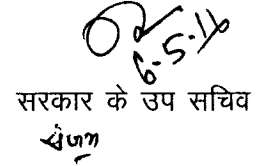 6.5.16
सरकार के उप सचिव